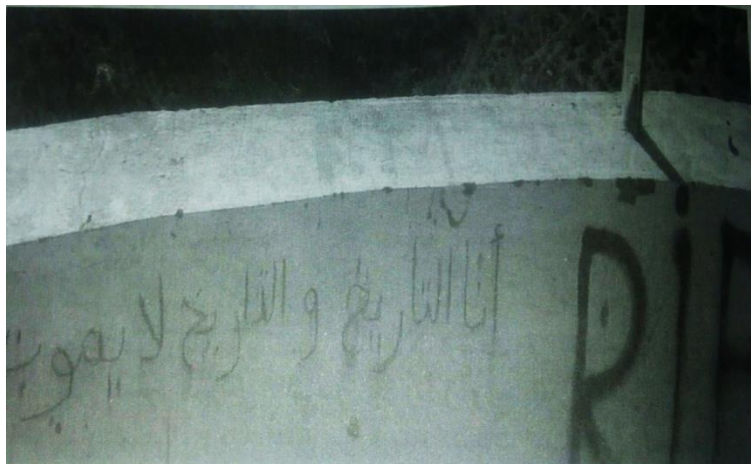 أنا التاريخ و التاريخ لا يموت
RIF